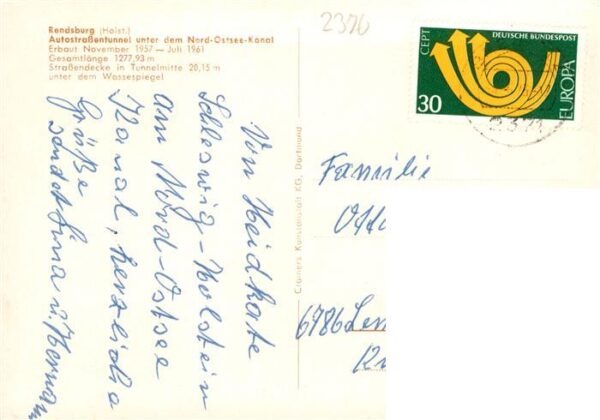 2370
Rendsburg (Holst.)
Autostraßentunnel unter dem Nord-Ostsee-Kanal
Erbaut November 1957 — Juli 1961
Gesamtlänge 1277,93 m
Straßendecke in Tunnelmitte 20,15 m
unter dem Wasserspiegel
Von Heidkate
Schleswig-Holstein
am Nord-Ostsee
Kanal, herzliche
Grüße
sendet Erna u. Herman
Cramers Kunstanstalt KG, Dortmund
CEPT
DEUTSCHE BUNDESPOST
EUROPA
30
Familie
Otto
6786